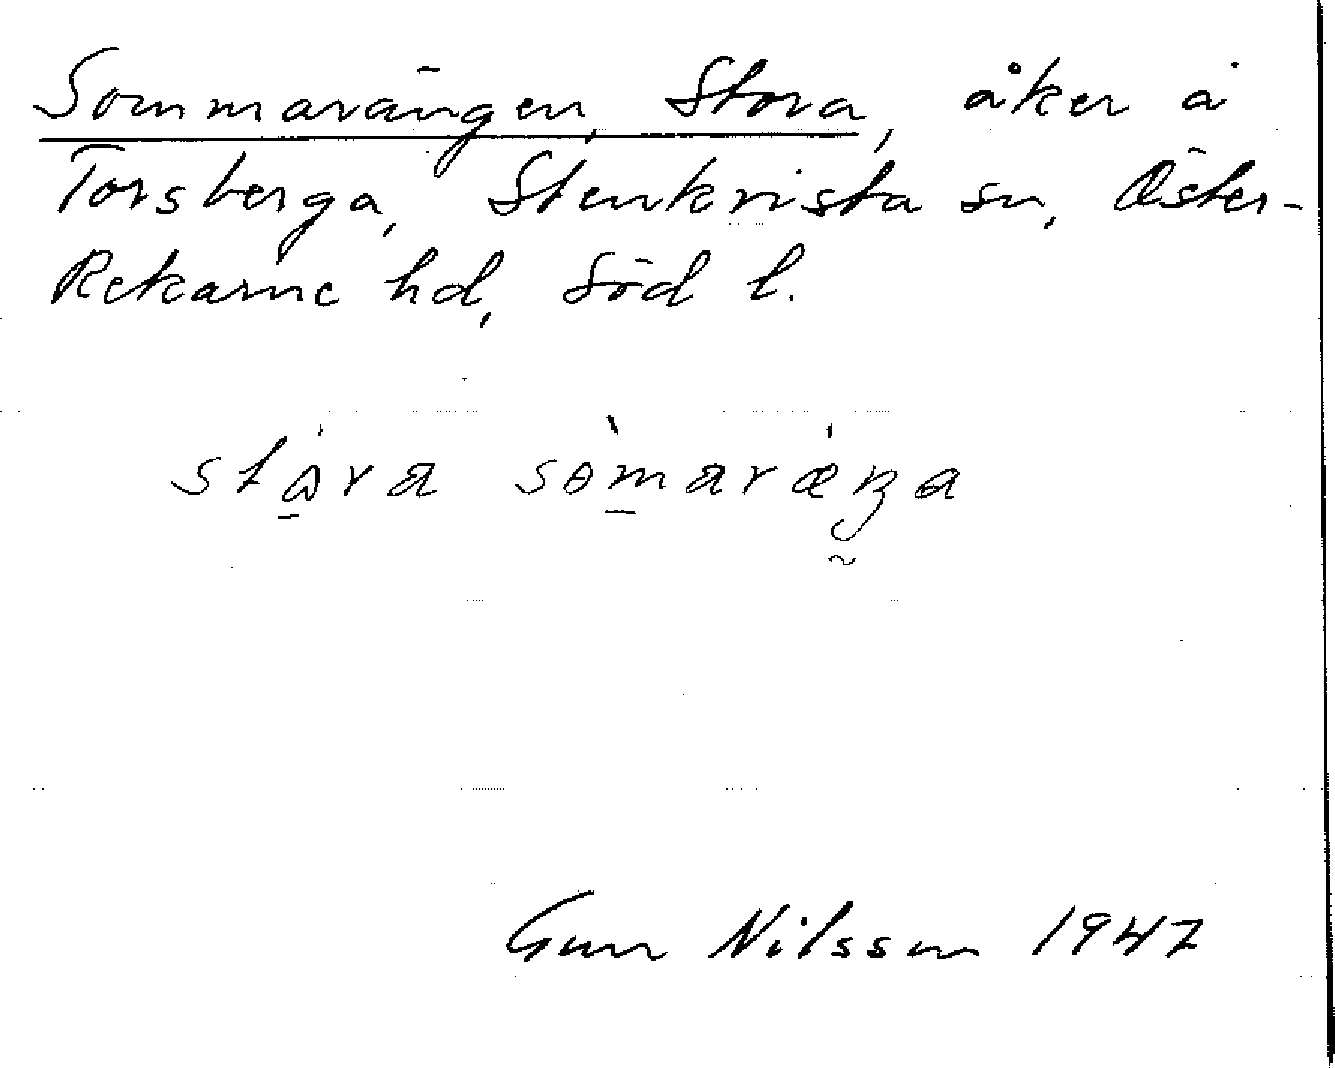 Sommarängen, Stora, åker å
Torsberga, Stenkvista sn, Öster-
Rekarne hd, Söd l.
stɷ̀ra sòmaræ̀ŋa
Gun Nilsson 1947